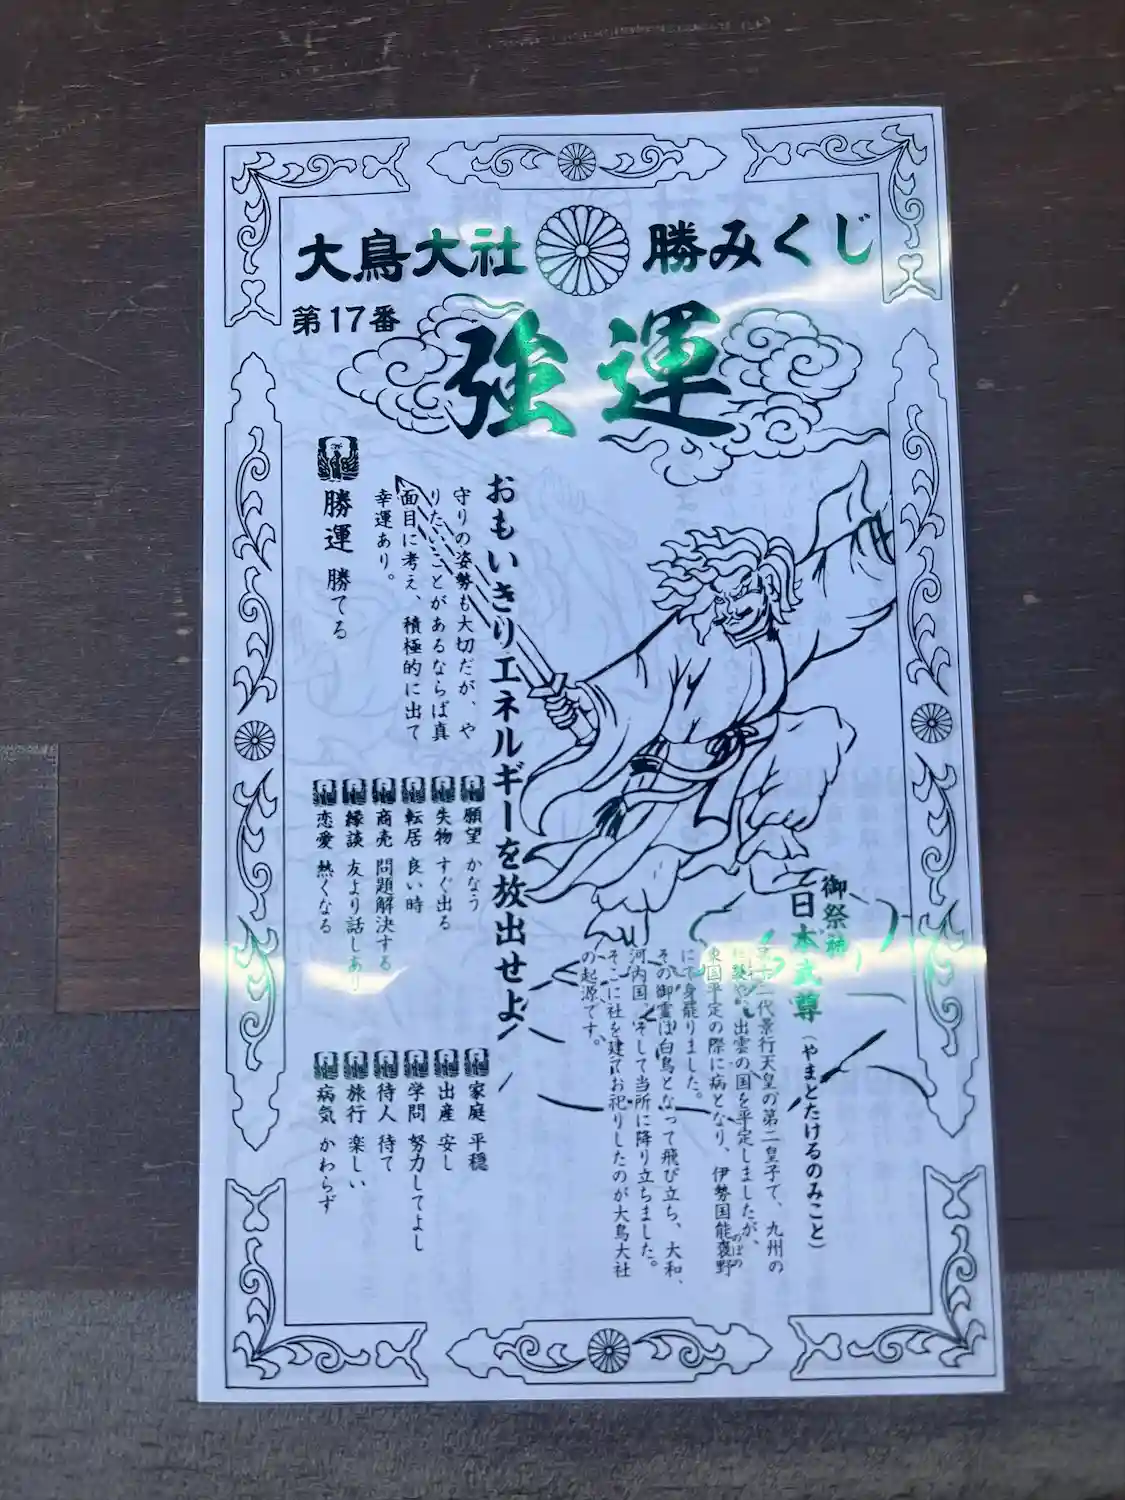 大鳥大社 勝みくじ
第17番
強運
御祭神
日本武尊(やまとたけるのみこと)
代景行天皇の第二皇子で、九州の
出雲の国を平定しましたが、
東国平定の際に病となり、伊勢国能褒野
のぼの
にて身罷りました。
その御霊は白鳥となって飛び立ち、大和、
河内国、そして当所に降り立ちました。
そこに社を建てお祀りしたのが大鳥大社
の起源です。
おもいきりエネルギーを放出せよ
守りの姿勢も大切だが、や
りたいことがあるならば真
面目に考え、積極的に出て
幸運あり。
勝運 勝てる
願望 かなう
失物 すぐ出る
転居 良い時
商売 問題解決する
縁談 友より話しあり
恋愛 熱くなる
家庭 平穏
出産 安し
学問 努力してよし
待人 待て
旅行 楽しい
病気 かわらず